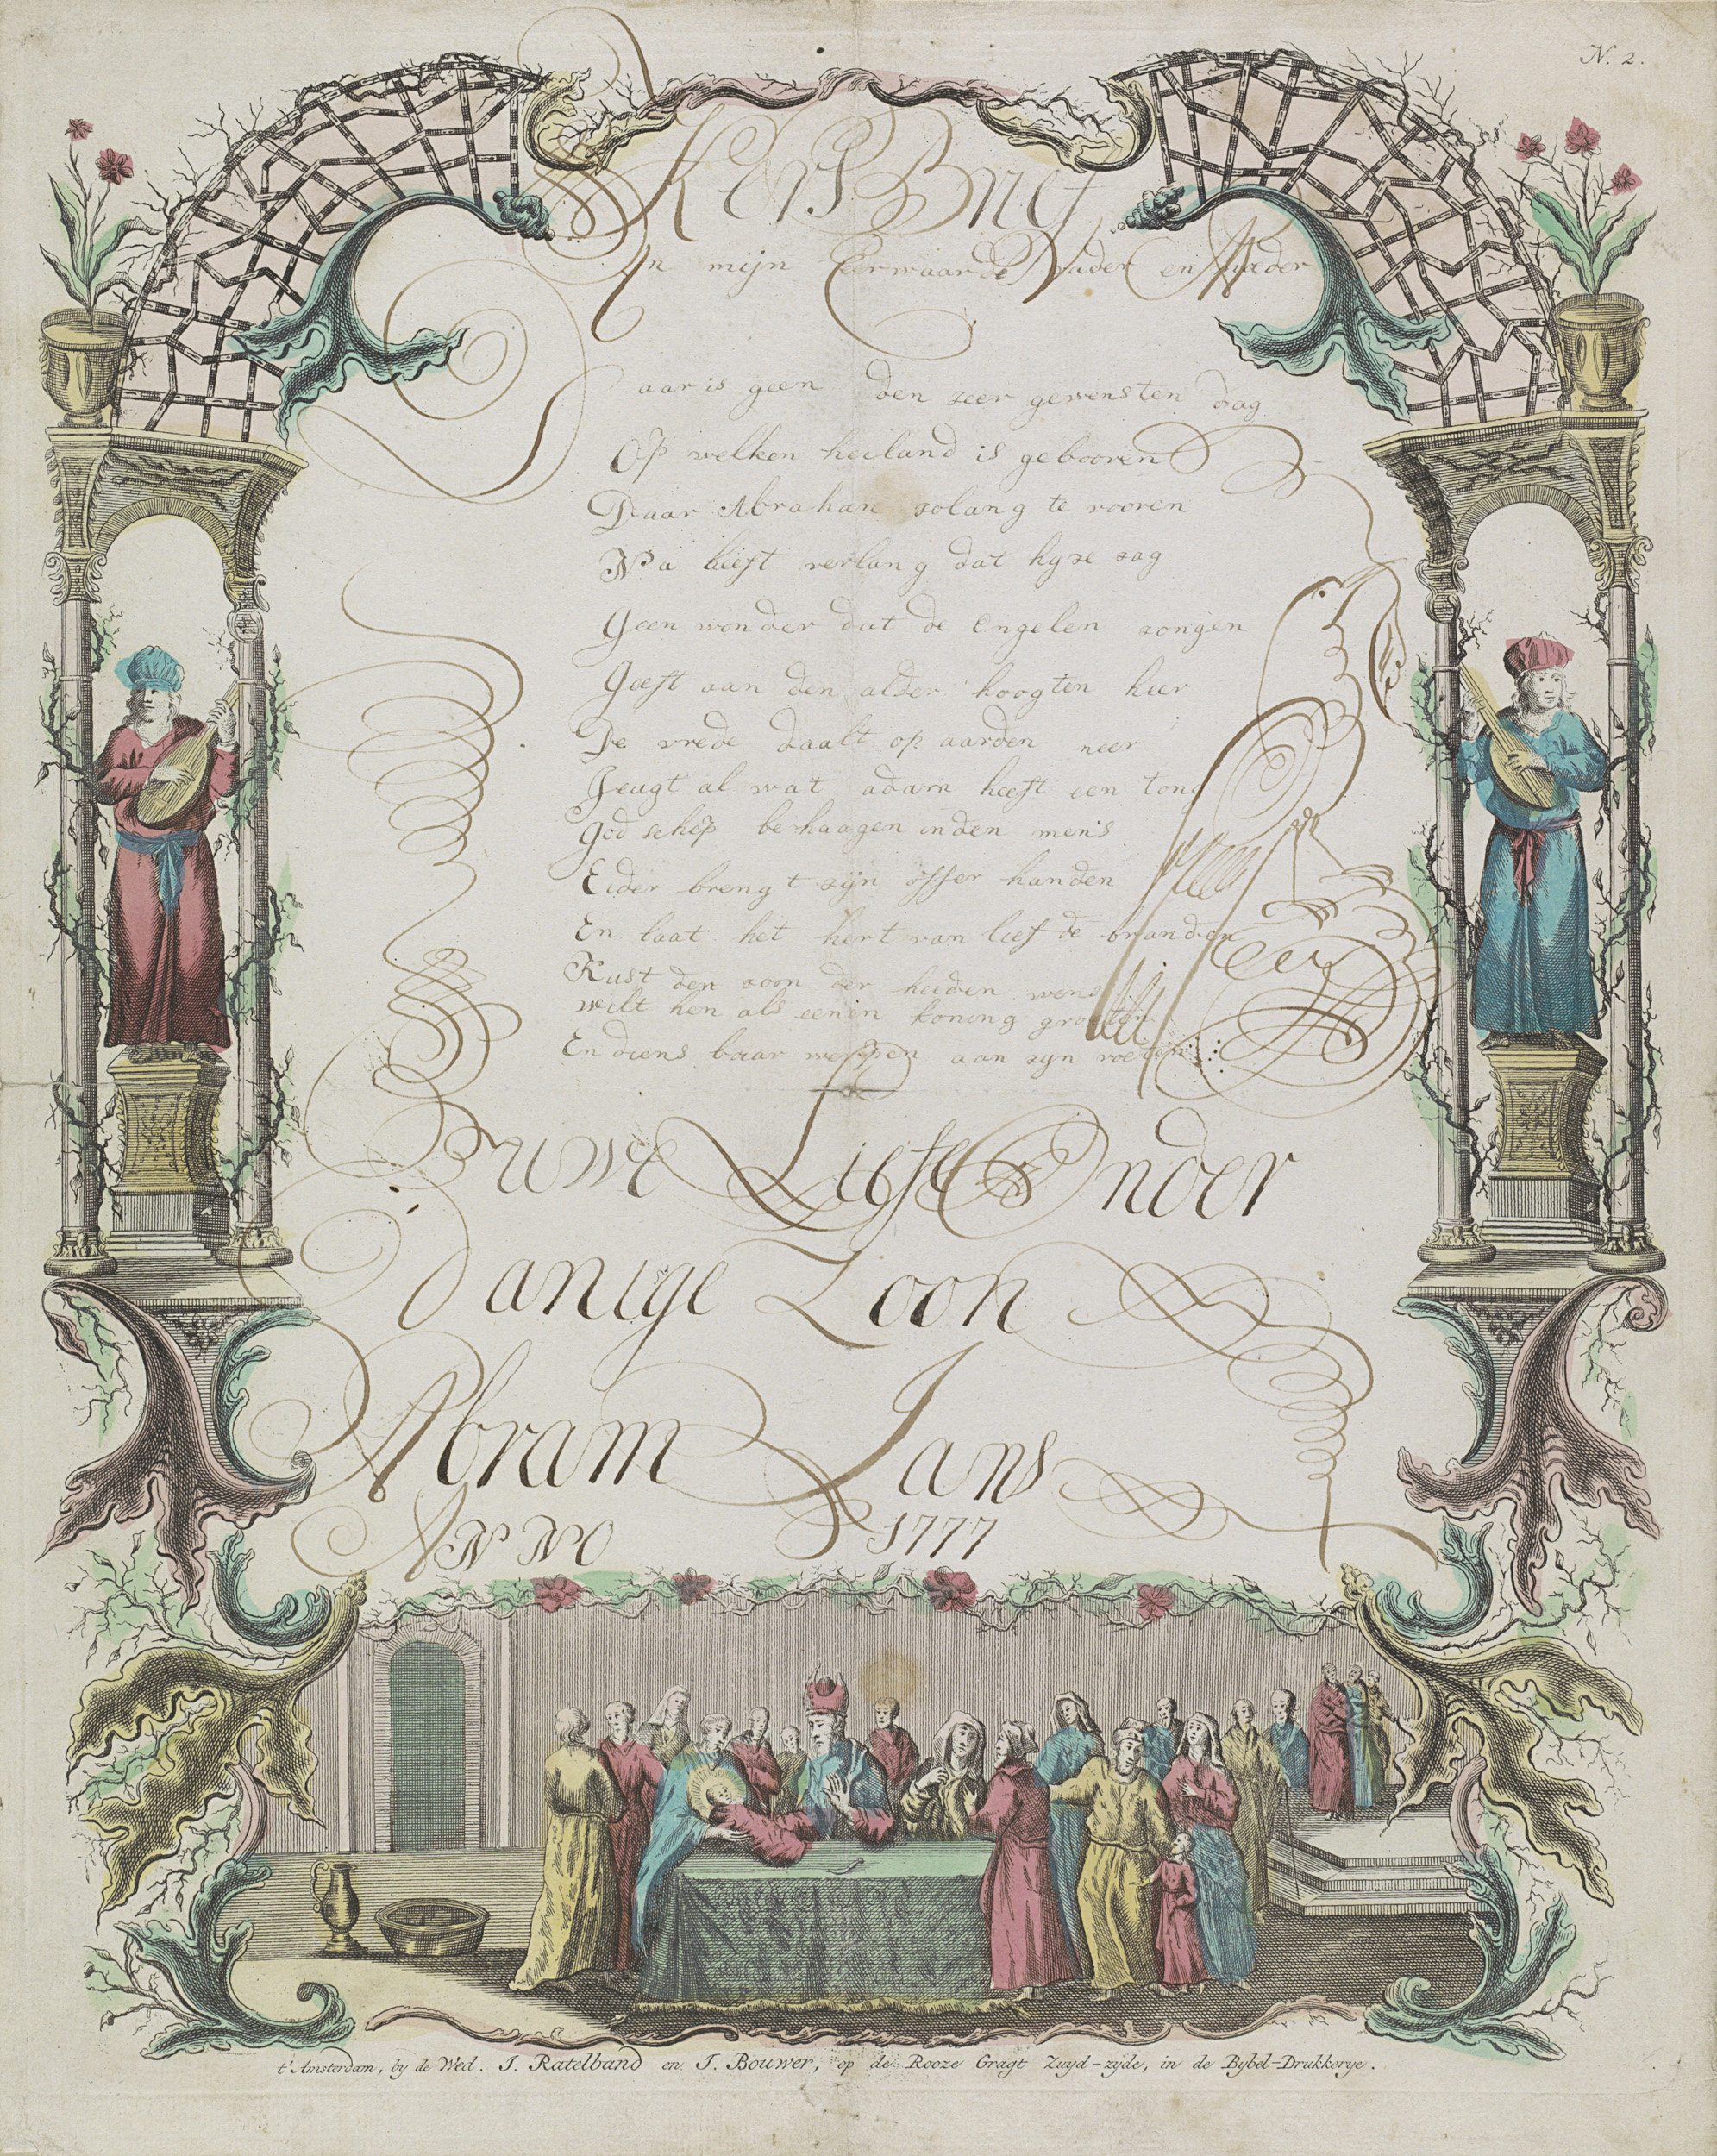 N. 2.
Kers Brief
An mijn Eerwaarde Vader en Mader
Daar is geen den zeer gewensten dag
Op welken heiland is gebooren
Daar Abrahan zolang te vooren
Na heeft verlang dat hy ze zag
Geen wonder dat de Engelen zongen
Geeft aan den alder hoogten heer
De vrede daalt op aarden neer
Jeugt al wat adam heeft een tong
God schep behaagen inden mens
Eider brengt zijn offer handen
En laat het hert van liefde branden
Kust den zoon der heeden wens
wilt hen als eenen koning groeten
En diens baar werppen aan zyn voeten
uwe Liefe Onder
danige Zoon
Abram Jans
ANNO 1777
t'Amsterdam, by de Wed. J. Ratelband en J. Bouwer, op de Rooze Gragt Zuyd-zyde, in de Bybel-Drukkerye.